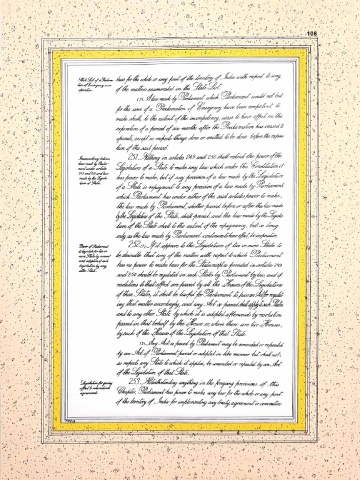 108
State List if a Proclama-
tion of Emergency is in
operation.
laws for the whole or any part of the territory of India with respect to any
of the matters enumerated in the State List.
(2) A law made by Parliament which Parliament would not but
for the issue of a Proclamation of Emergency have been competent to
make shall, to the extent of the incompetency, cease to have effect on the
expiration of a period of six months after the Proclamation has ceased to
operate, except as respects things done or omitted to be done before the expira-
tion of the said period.
251. Nothing in articles 249 and 250 shall restrict the power of the
Legislature of a State to make any law which under this Constitution it
has power to make, but if any provision of a law made by the Legislature
of a State is repugnant to any provision of a law made by Parliament
which Parliament has under either of the said articles power to make,
the law made by Parliament, whether passed before or after the law made
by the Legislature of the State, shall prevail, and the law made by the Legisla-
ture of the State shall to the extent of the repugnancy, but so long
only as the law made by Parliament continues to have effect, be inoperative.
252. (1) If it appears to the Legislatures of two or more States to
be desirable that any of the matters with respect to which Parliament
has no power to make laws for the States except as provided in articles 249
and 250 should be regulated in such States by Parliament by law, and if
resolutions to that effect are passed by all the Houses of the Legislatures
of those States, it shall be lawful for Parliament to pass an Act for regulat-
ing that matter accordingly, and any Act so passed shall apply to such States
and to any other State by which it is adopted afterwards by resolution
passed in that behalf by the House or, where there are two Houses,
by each of the Houses of the Legislature of that State.
(2) Any Act so passed by Parliament may be amended or repealed
by an Act of Parliament passed or adopted in like manner but shall not,
as respects any State to which it applies, be amended or repealed by an Act
of the Legislature of that State.
253. Notwithstanding anything in the foregoing provisions of this
Chapter, Parliament has power to make any law for the whole or any part
of the territory of India for implementing any treaty, agreement or convention